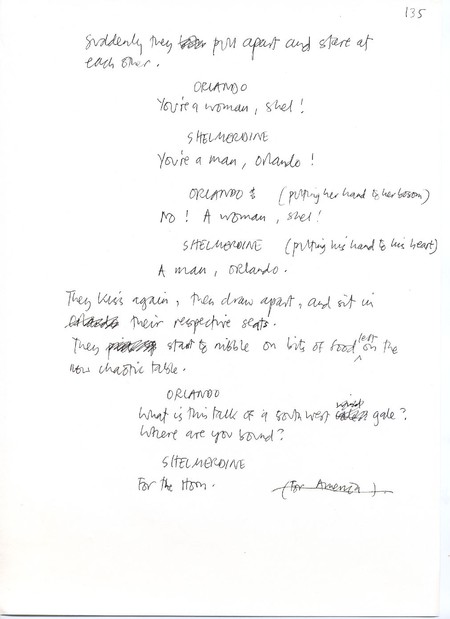 135
Suddenly they pull apart and stare at
each other.
ORLANDO
You're a woman, Shel!
SHELMERDINE
You're a man, Orlando!
ORLANDO (putting her hand to her bosom)
No! A woman, Shel!
SHELMERDINE (putting his hand to his heart)
A man, Orlando.
They kiss again, then draw apart, and sit in
their respective seats.
They start to nibble on bits of food left on the
now chaotic table.
ORLANDO
What is this talk of a south west wind gale?
Where are you bound?
SHELMERDINE
For the Horn. (For America)